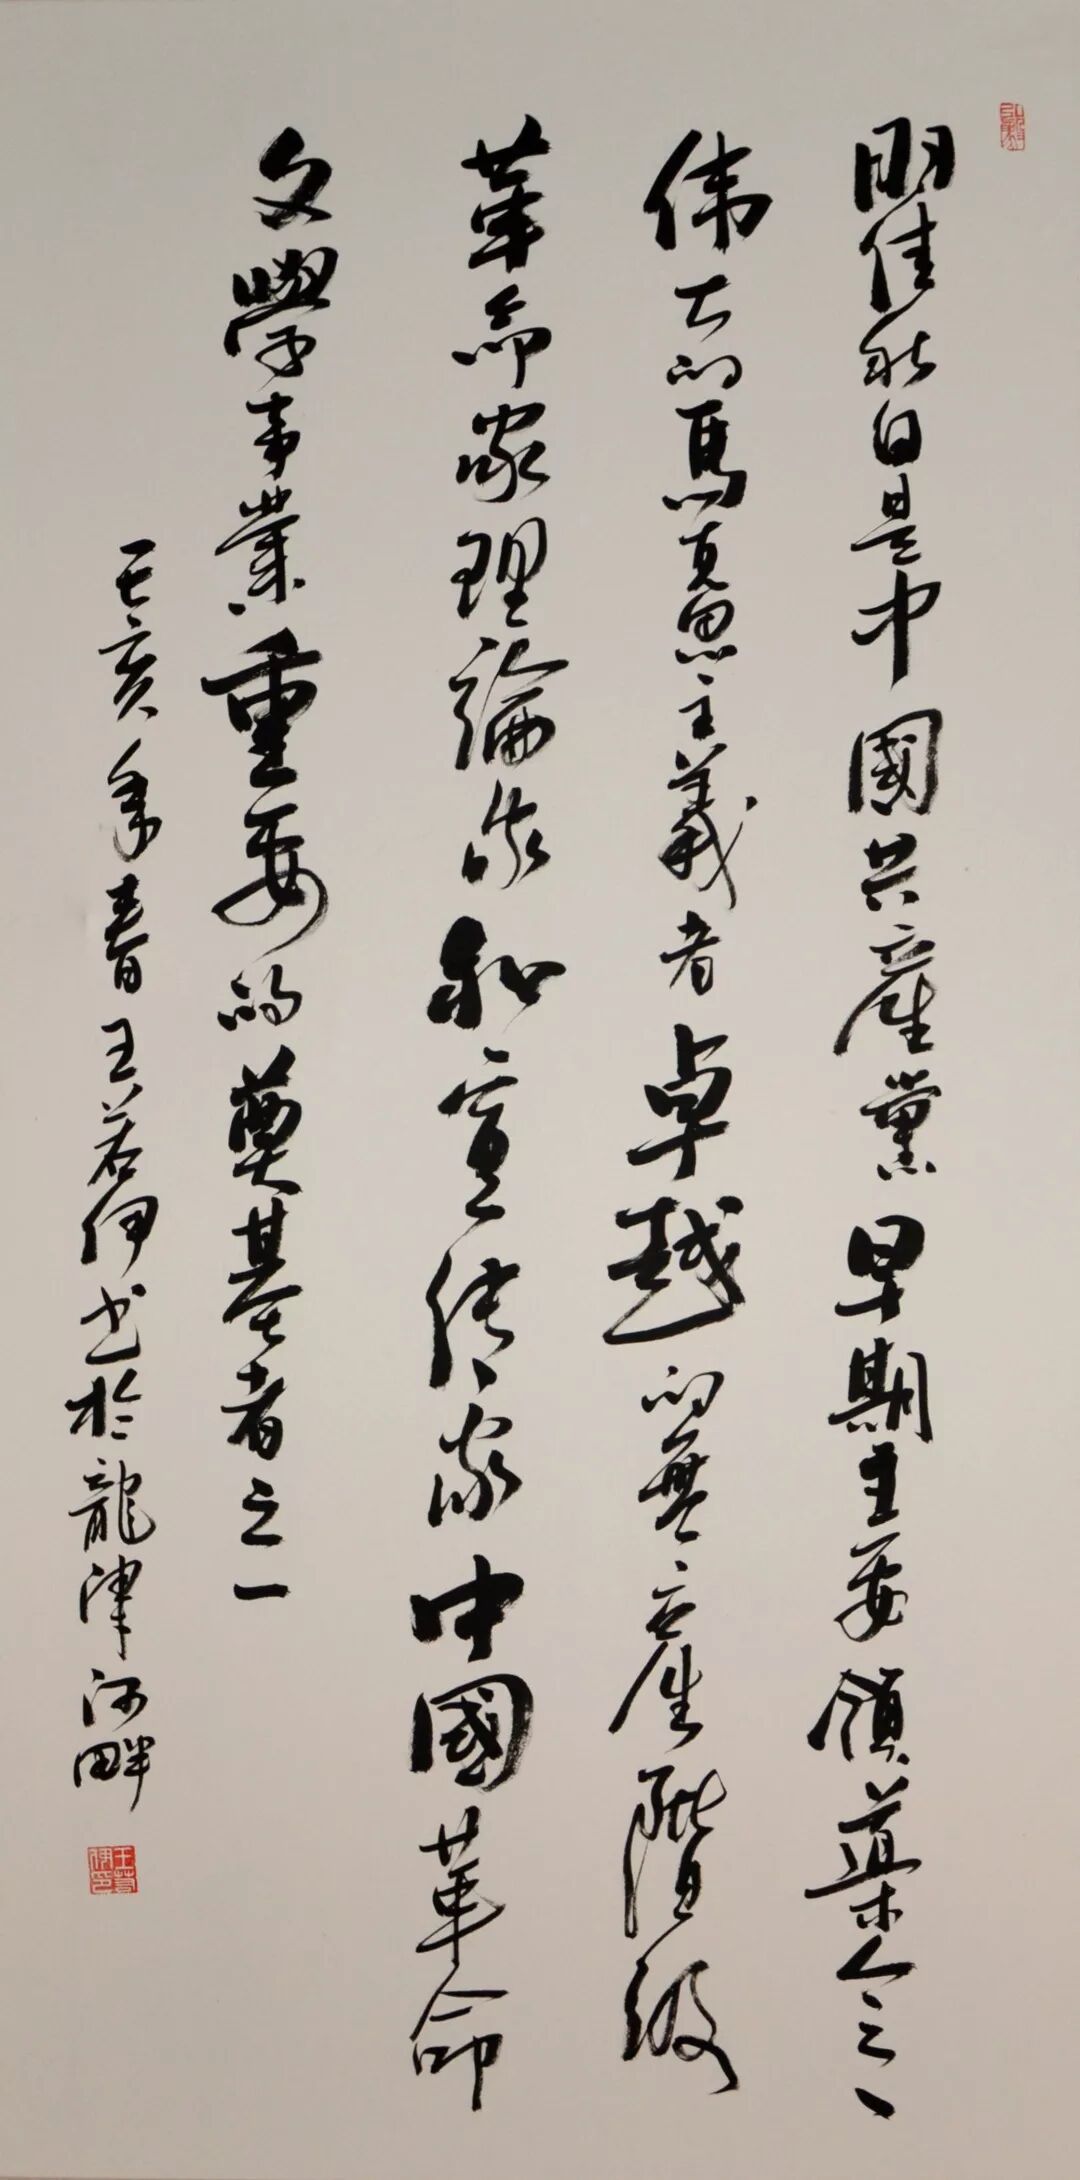 瞿秋白是中國共產黨早期主要領導人之一
伟大的馬克思主義者卓越的無產階級
革命家理論家和宣傳家中國革命
文學事業重要的奠基者之一
己亥年春王若伊书於龍津河畔
王若伊印